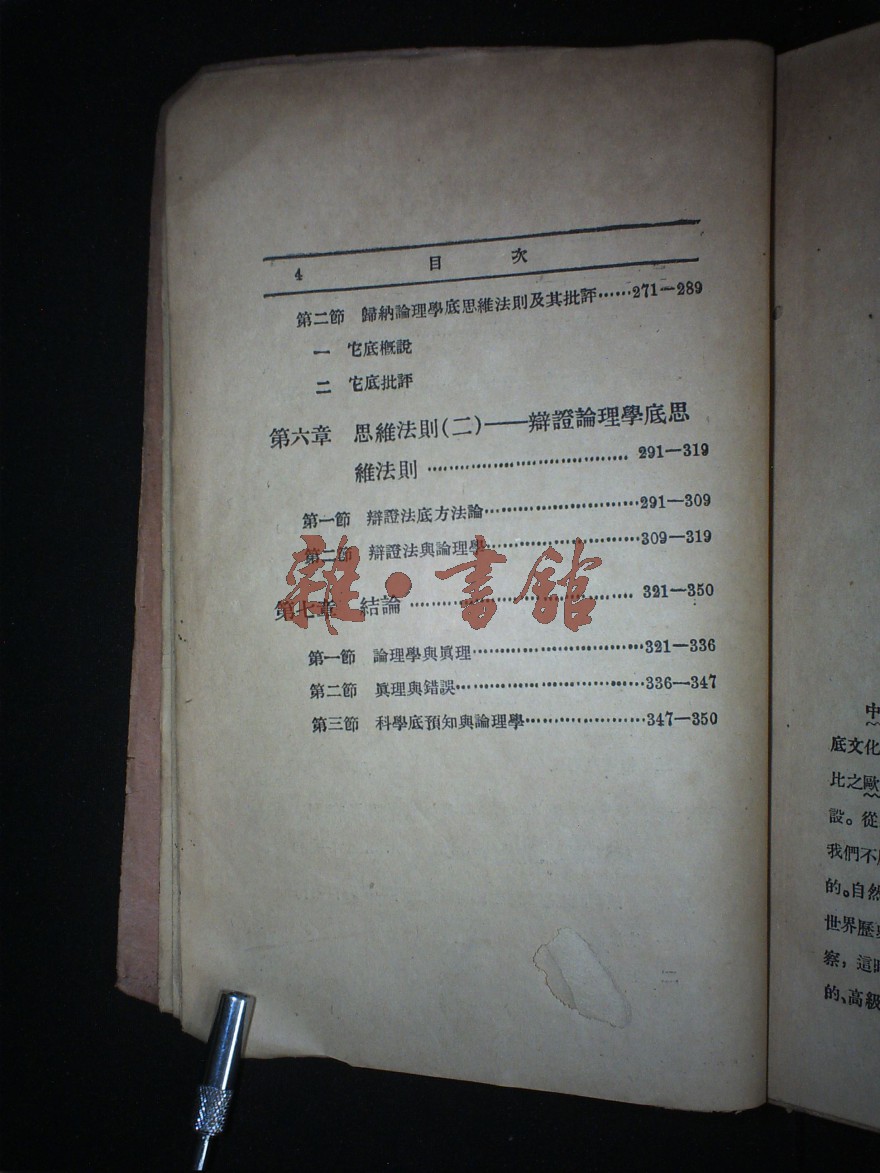 4 目次
第二節 歸納論理學底思維法則及其批評……271—289
一 它底概說
二 它底批評
第六章 思維法則(二)——辯證論理學底思
維法則……291—319
第一節 辯證法底方法論……291—309
第二節 辯證法與論理學……309—319
雜·書館
第七章 結論……321—350
第一節 論理學與眞理……321—336
第二節 眞理與錯誤……336—347
第三節 科學底預知與論理學……347—350
中
底文化
比之歐
設。從
我們不
的。自然
世界歷
察，這
的、高級